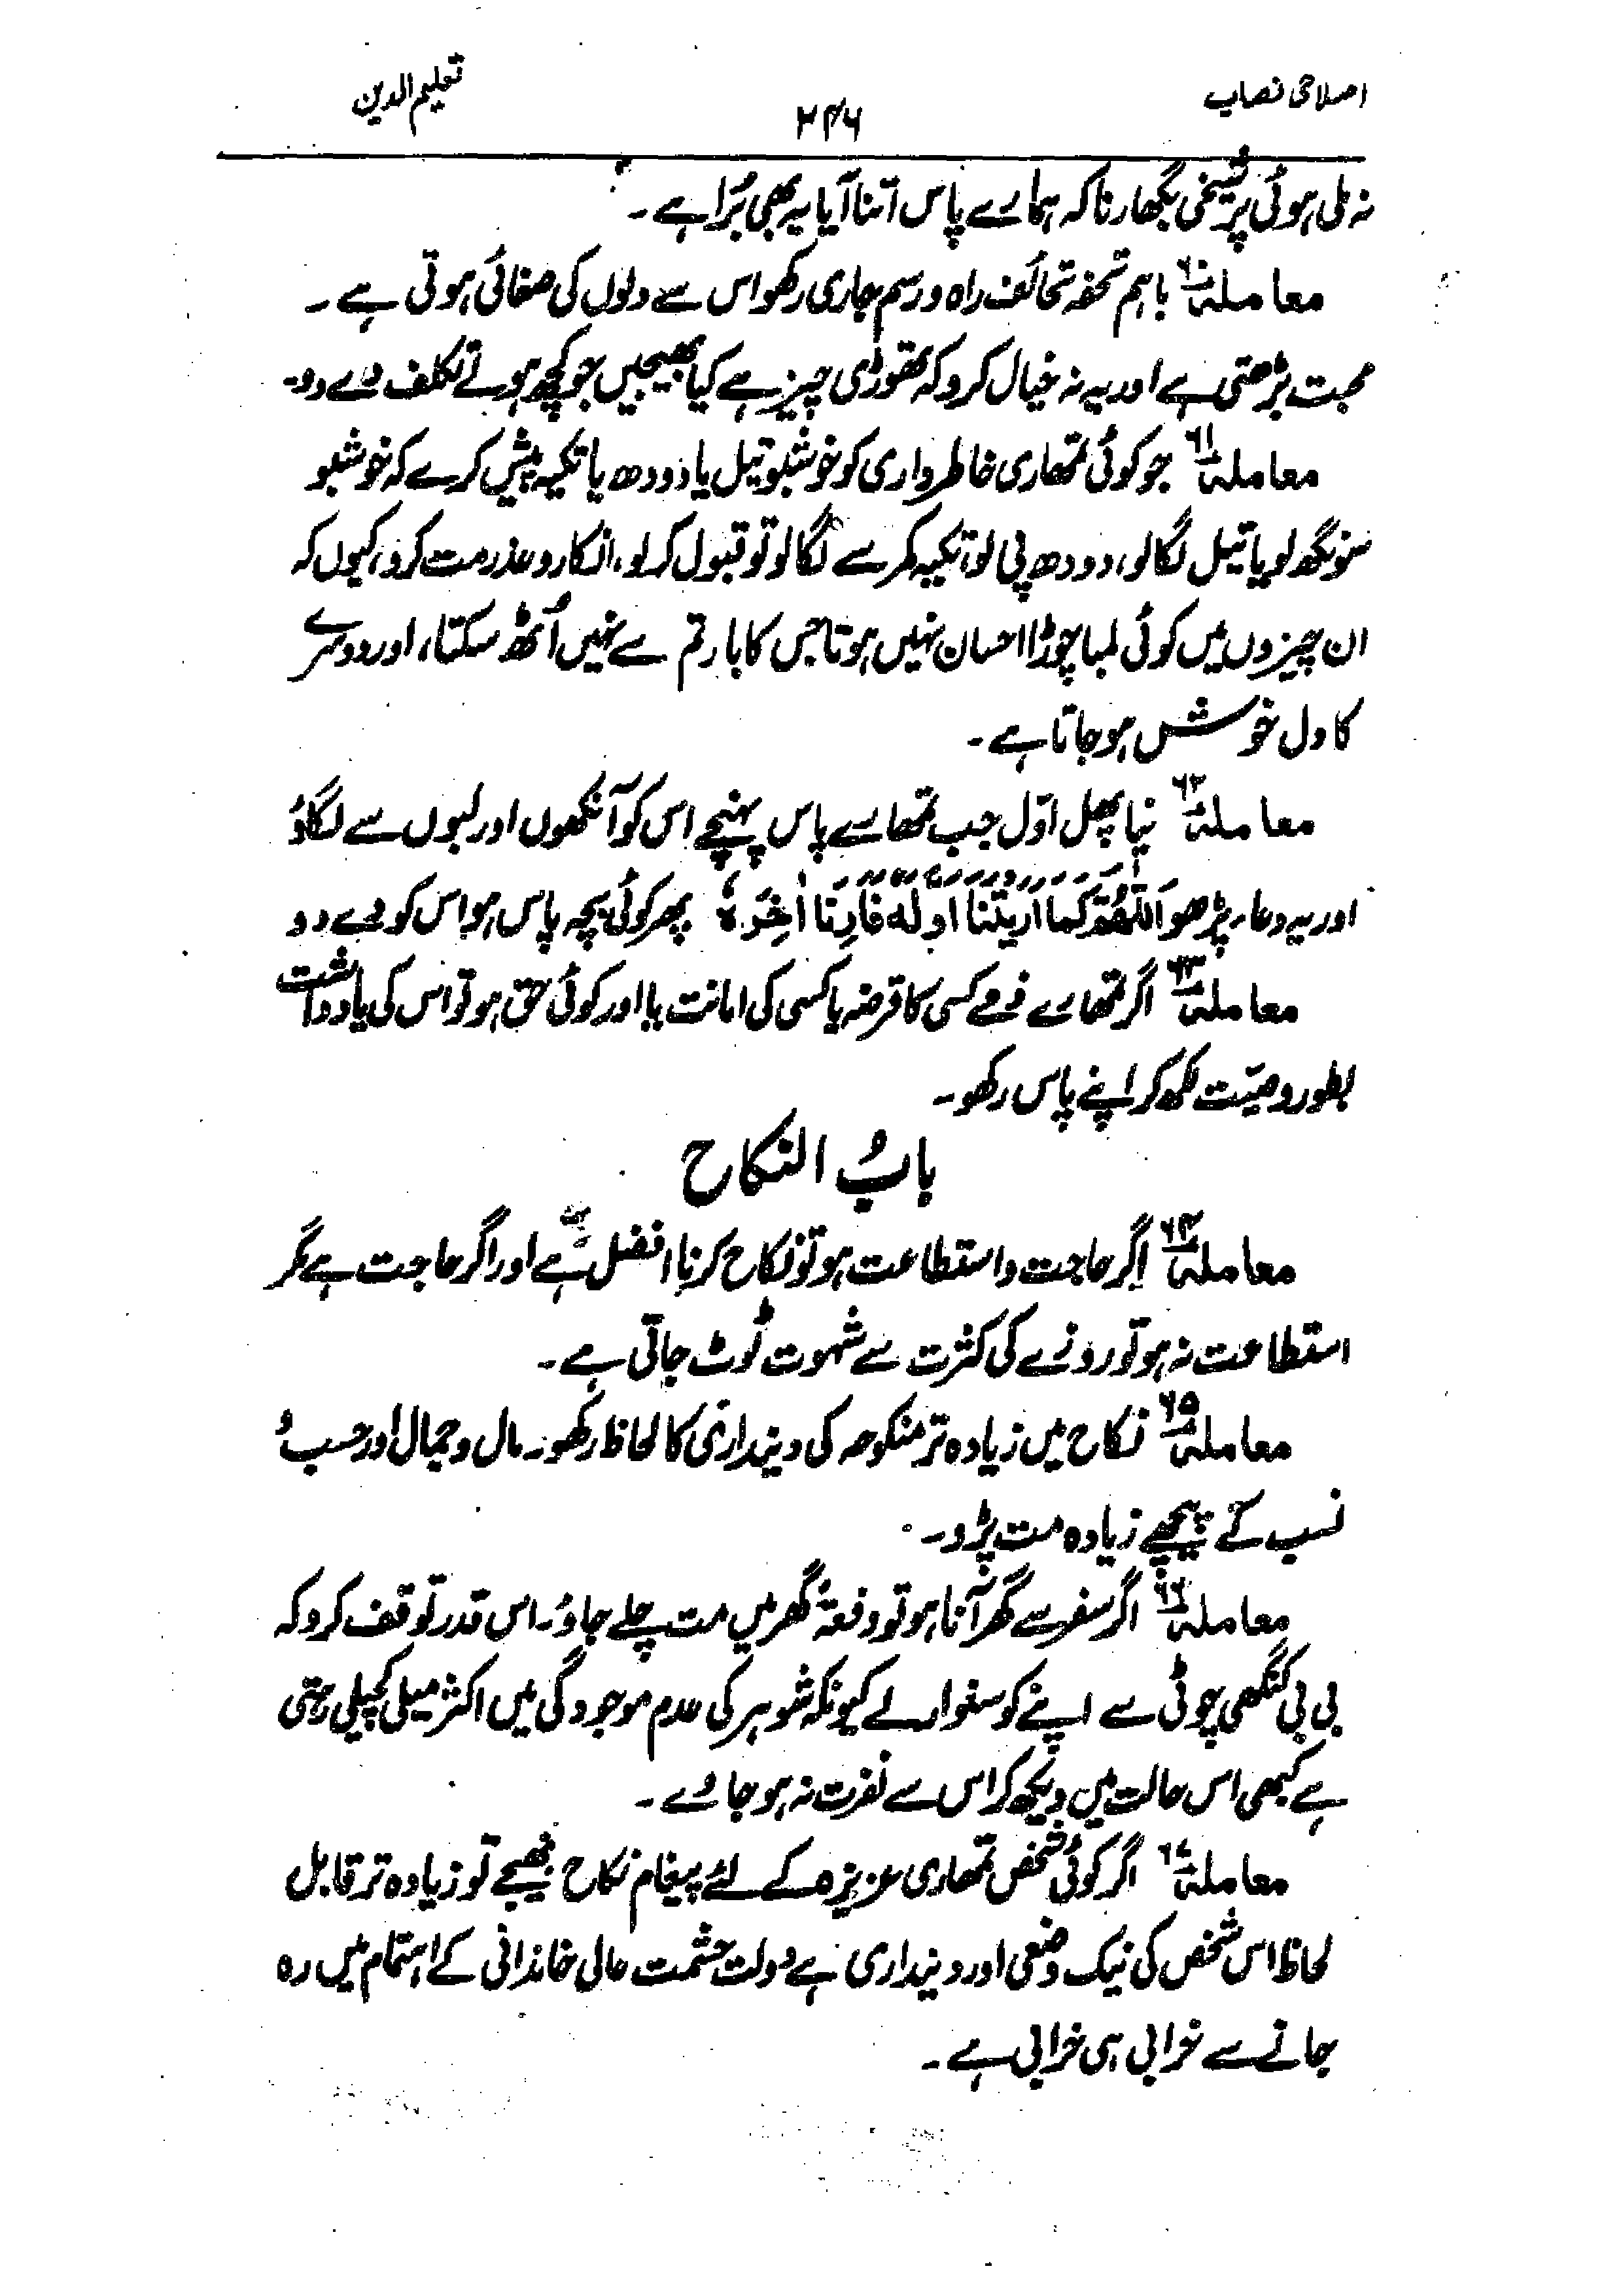 اصلاحی نصاب
۲۴۶
تعلیم الدین
نہ ملی ہوئی پر شیخی بگھارنا کہ ہمارے پاس اتنا آیا یہ بھی بُرا ہے۔
معاملہ ۶۰ باہم تحفہ تحائف راہ و رسم جاری رکھو اس سے دلوں کی صفائی ہوتی ہے۔
محبت بڑھتی ہے اور یہ نہ خیال کرو کہ تھوڑی چیز ہے کیا بھیجیں جو کچھ ہو بے تکلف دے دو۔
معاملہ ۶۱ جو کوئی تمھاری خاطر داری کو خوشبو تیل یا دودھ یا تکیہ پیش کرے کہ خوشبو
سونگھ لو یا تیل لگا لو، دودھ پی لو، تکیہ کمر سے لگا لو تو قبول کر لو، انکار و عذر مت کرو، کیوں کہ
ان چیزوں میں کوئی لمبا چوڑا احسان نہیں ہوتا جس کا بار تم سے نہیں اُٹھ سکتا، اور دوسرے
کا دل خوش ہو جاتا ہے۔
معاملہ ۶۲ نیا پھل اوّل جب تمھارے پاس پہنچے اس کو آنکھوں اور لبوں سے لگاؤ
اور یہ دعاء پڑھو اَللّٰھُمَّ کَمَا اَرَیْتَنَا اَوَّلَهٗ فَاَرِنَا اٰخِرَهٗ پھر کوئی بچہ پاس ہو اس کو دے دو
معاملہ ۶۳ اگر تمھارے ذمے کسی کا قرضہ یا کسی کی امانت یا اور کوئی حق ہو تو اس کی یادداشت
بطور وصیّت لکھ کر اپنے پاس رکھو۔
بابُ النکاح
معاملہ ۶۴ اگر حاجت و استطاعت ہو تو نکاح کرنا افضل ہے اور اگر حاجت ہے مگر
استطاعت نہ ہو تو روزے کی کثرت سے شہوت ٹوٹ جاتی ہے۔
معاملہ ۶۵ نکاح میں زیادہ تر منکوحہ کی دینداری کا لحاظ رکھو۔ مال و جمال اور حسب و
نسب کے پیچھے زیادہ مت پڑو۔
معاملہ ۶۶ اگر سفر سے گھر آنا ہو تو دفعۃً گھر میں مت چلے جاؤ۔ اس قدر توقف کرو کہ
بی بی کنگھی چوٹی سے اپنے کو سنوار لے کیونکہ شوہر کی عدم موجودگی میں اکثر میلی کچیلی رہتی
ہے کبھی اس حالت میں دیکھ کر اس سے نفرت نہ ہو جاوے۔
معاملہ ۶۷ اگر کوئی شخص تمھاری عزیزہ کے لئے پیغام نکاح بھیجے تو زیادہ تر قابل
لحاظ اس شخص کی نیک وضعی اور دینداری ہے دولت حشمت عالی خاندانی کے اہتمام میں رہ
جانے سے خرابی ہی خرابی ہے۔